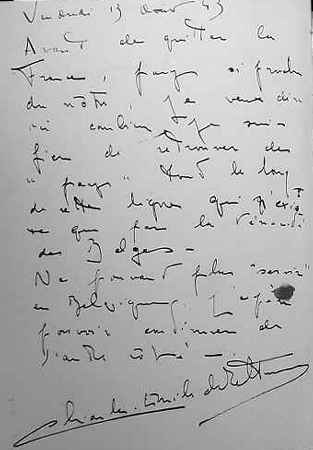 Vendredi 13 Août 43
Avant de quitter la
France, pays si proche
du nôtre, je veux dire
ici combien je suis
fier de retrouver des
"pays" tout le long
de cette ligne qui
que par la
des Belges –
Ne pouvant plus "servir"
en Belgique, j'espère
pouvoir continuer de
l'autre côté –